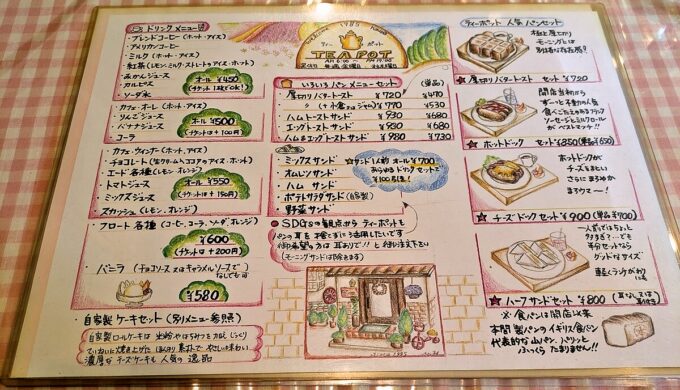 ドリンクメニュー
・ブレンドコーヒー(ホット・アイス)
・アメリカンコーヒー
・ミルク(ホット・アイス)
・紅茶(レモン・ミルク・ストレートもアイス・ホット)
・みかんジュース
・カルピス
・ソーダ水
オール ¥450
(チケット1枚でOK!)
・カフェ・オーレ(ホット・アイス)
・りんごジュース
・バナナジュース
・コーラ
オール ¥500
(チケットは+100円)
・カフェ・ウィンナー(ホット・アイス)
・チョコレート(生クリーム入ココアのアイス・ホット)
・エード各種(レモン・オレンジ)
・トマトジュース
・ミックスジュース
・スカッシュ(レモン・オレンジ)
オール ¥550
(チケットは+150円)
・フロート各種(コーヒー、コーラ、ソーダ、オレンジ)
¥600
(チケットは+200円)
・バニラ(チョコソース又はキャラメルソースで)
なしでも可
¥580
・自家製ケーキセット(別メニュー参照)
自家製ロールケーキは
濃厚なチーズケーキも人気の逸品
SINCE 1985
ティー ポット
TEA POT
いろいろパンメニューセット
(単品)
・厚切りバタートースト ¥720 ¥470
・〃(+小倉orジャム) ¥770 ¥530
・ハムトーストサンド ¥930 ¥680
・エッグトーストサンド ¥930 ¥680
・ハム&エッグトーストサンド ¥980 ¥730
・ミックスサンド
・オムレツサンド
・ハムサンド
・ポテトサラダサンド(自製)
・野菜サンド
サンド1人前 オール¥700
あらゆるドリンクセットで
¥100引き!
●SDGsの観点からティーポットも
パンの耳を捨てずに活用したいです
御希望の方は耳ありで!!と御注文下さい
(モーニングサンドは除きます)
since 1985
ティーポット 人気パンセット
モーニングとは
別格な存在感!
★厚切りバタートーストセット ¥720
開店当初から
ずーっと不動の人気
食べごたえのあるフランク
ソーセージとミルクロール
がベストマッチ!!
★ホットドックセット ¥850(単品¥650)
ホットドックが
チーズをまとい
さらにまろやか
まろウマー!
★チーズドックセット ¥900(単品¥700)
一人前ではちょっと
多すぎ?…でも
半分セットなら
グッドなサイズ
軽くランチがわりに
★ハーフサンドセット ¥800
※食パンは開店以来
本間製パンのイギリス食パン
代表的な山パン、パリッと
ふっくらたまりません!!